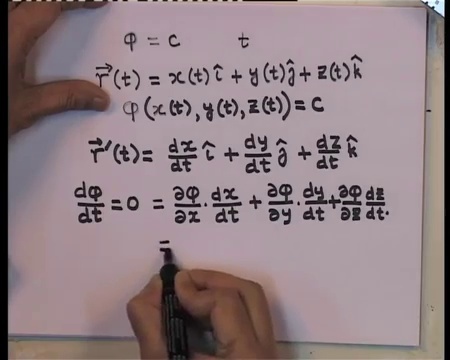 φ = c t
r⃗(t) = x(t) î + y(t) ĵ + z(t) k̂
φ(x(t), y(t), z(t)) = c
r⃗'(t) = dx/dt î + dy/dt ĵ + dz/dt k̂
dφ/dt = 0 = ∂φ/∂x · dx/dt + ∂φ/∂y · dy/dt + ∂φ/∂z dz/dt.
=